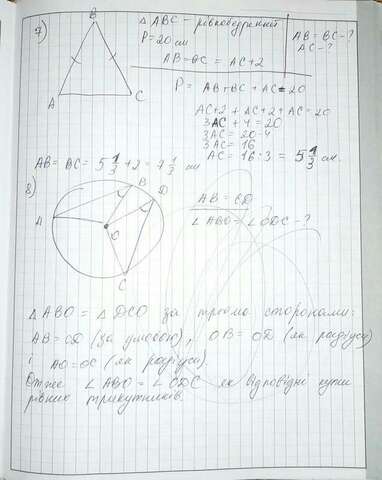 7)
B
A
C
△ABC - рівнобедрений
P=20 см
AB=BC = AC+2
AB=BC-?
AC-?
P = AB+BC+AC=20
AC+2+AC+2+AC=20
3AC+4=20
3AC=20-4
3AC=16
AC=16:3=5 1/3 см.
AB=BC=5 1/3+2=7 1/3 см
8)
B
D
A
O
C
AB=CD
∠ABO=∠ODC-?
△ABO=△DCO за трьома сторонами:
AB=CD (за умовою), OB=OD (як радіуси)
і AO=OC (як радіуси).
Отже ∠ABO=∠ODC як відповідні кути
рівних трикутників.